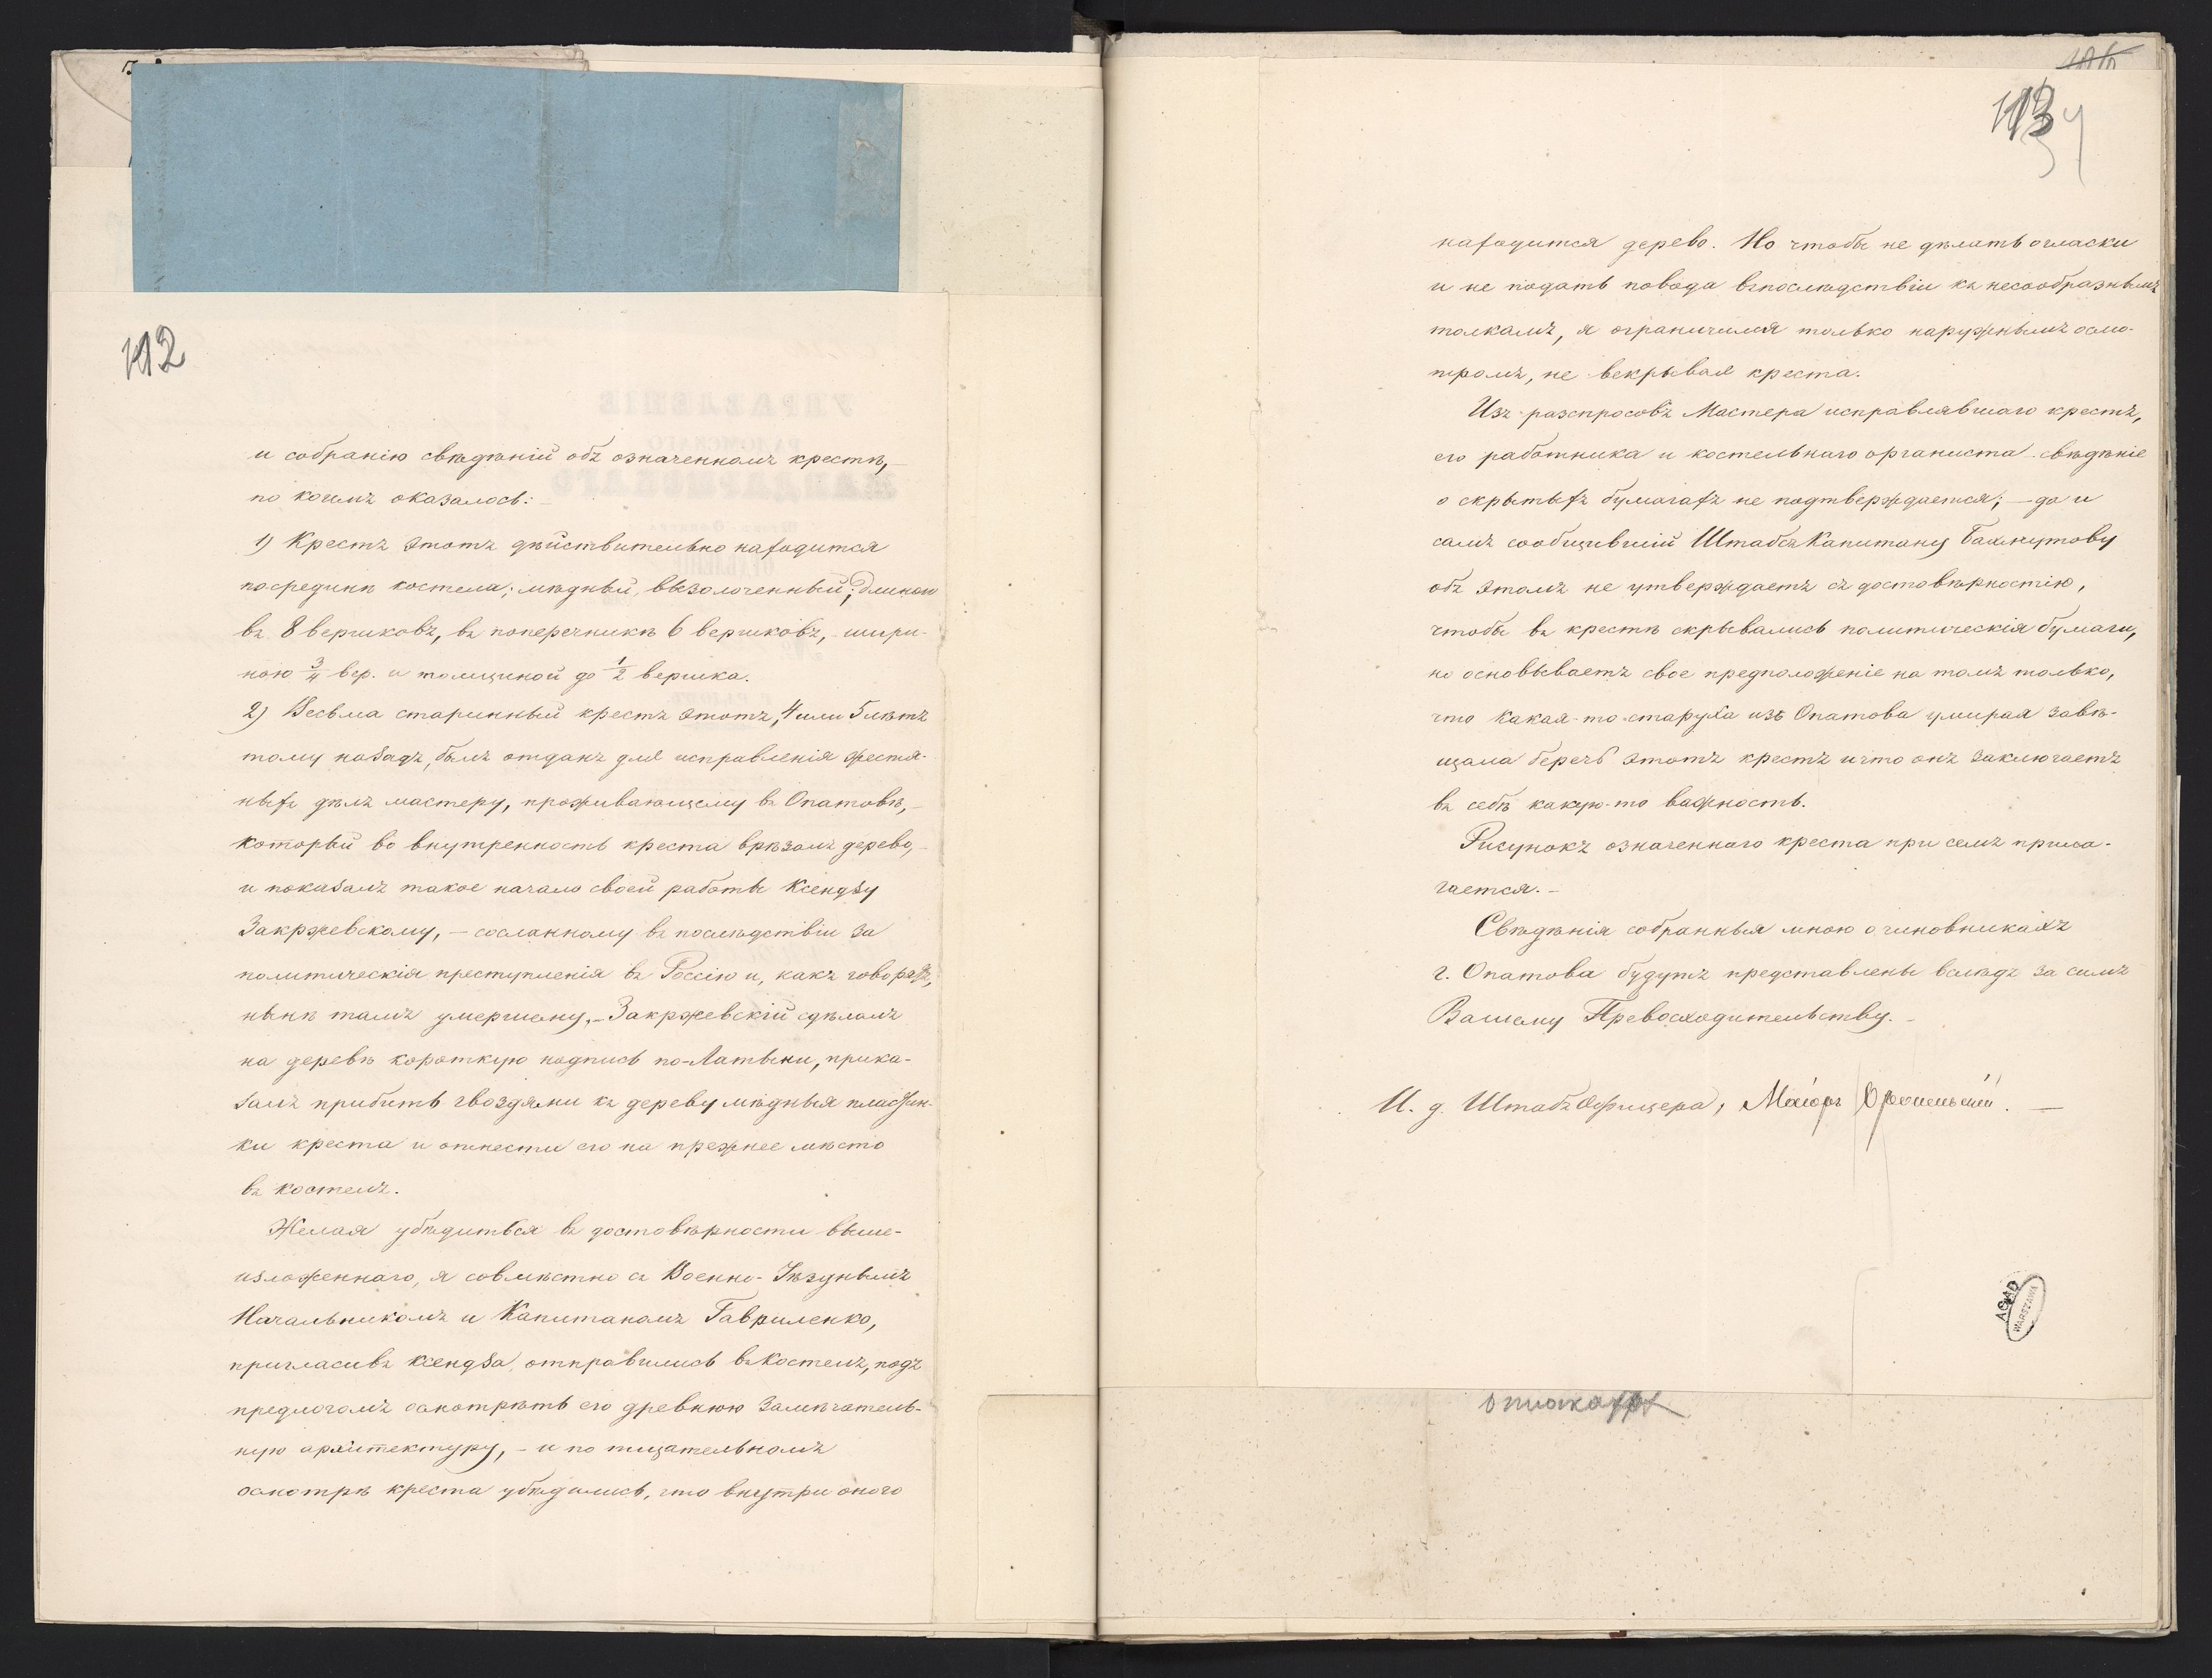 112
и собранію свѣдѣній объ означенномъ крестѣ,
по коимъ оказалось:
1) Крестъ этотъ дѣйствительно находится
посрединѣ костела; мѣдный, вызолоченный; длиною
въ 8 вершковъ, въ поперечникѣ 6 вершковъ, шири-
ною 3/4 вер. и толщиной до 1/2 вершка.
2) Весьма старинный крестъ этотъ, 4 или 5 лѣтъ
тому назадъ, былъ отданъ для исправленія жестя-
ныхъ дѣлъ мастеру, проживающему въ Опатовѣ,–
который во внутренность креста врѣзалъ дерево,–
и показалъ такое начало своей работы Ксендзу
Закржевскому, – сосланному въ послѣдствіи за
политическія преступленія въ Россію и, какъ говорятъ,
нынѣ тамъ умершему. – Закржевскій сдѣлалъ
на деревѣ короткую надпись по-Латыни, прика-
залъ прибить гвоздями къ дереву мѣдныя пластин-
ки креста и отнести его на прежнее мѣсто
въ костелъ.
Желая убѣдиться въ достовѣрности выше-
изложеннаго, я совмѣстно съ Военно-Уѣзднымъ
Начальникомъ и Капитаномъ Гавриленко,
пригласивъ Ксендза, отправились въ Костелъ, подъ
предлогомъ осмотрѣть его древнюю замѣчатель-
ную архитектуру, – и по тщательномъ
осмотрѣ креста убѣдились, что внутри онаго
113
находится дерево. Но чтобы не дѣлать огласки
и не подать повода впослѣдствіи къ несообразнымъ
толкамъ, я ограничился только наружнымъ осмо-
тромъ, не вскрывая креста.
Изъ разспросовъ Мастера исправлявшаго крестъ,
его работника и костельнаго органиста свѣдѣніе
о скрытыхъ бумагахъ не подтверждается; – да и
самъ сообщившій Штабсъ Капитану Бахмутову
объ этомъ не утверждаетъ съ достовѣрностію,
чтобы въ крестѣ скрывались политическія бумаги,
но основываетъ свое предположеніе на томъ только,
что какая-то старуха изъ Опатова умирая завѣ-
щала беречь этотъ крестъ и что онъ заключаетъ
въ себѣ какую-то важность.
Рисунокъ означеннаго креста при семъ прила-
гается. –
Свѣдѣнія собранныя мною о чиновникахъ
г. Опатова будутъ представлены вслѣдъ за симъ
Вашему Превосходительству. –
И. д. Штабъ Офицера, Маіоръ
AGAD
WARSZAWA